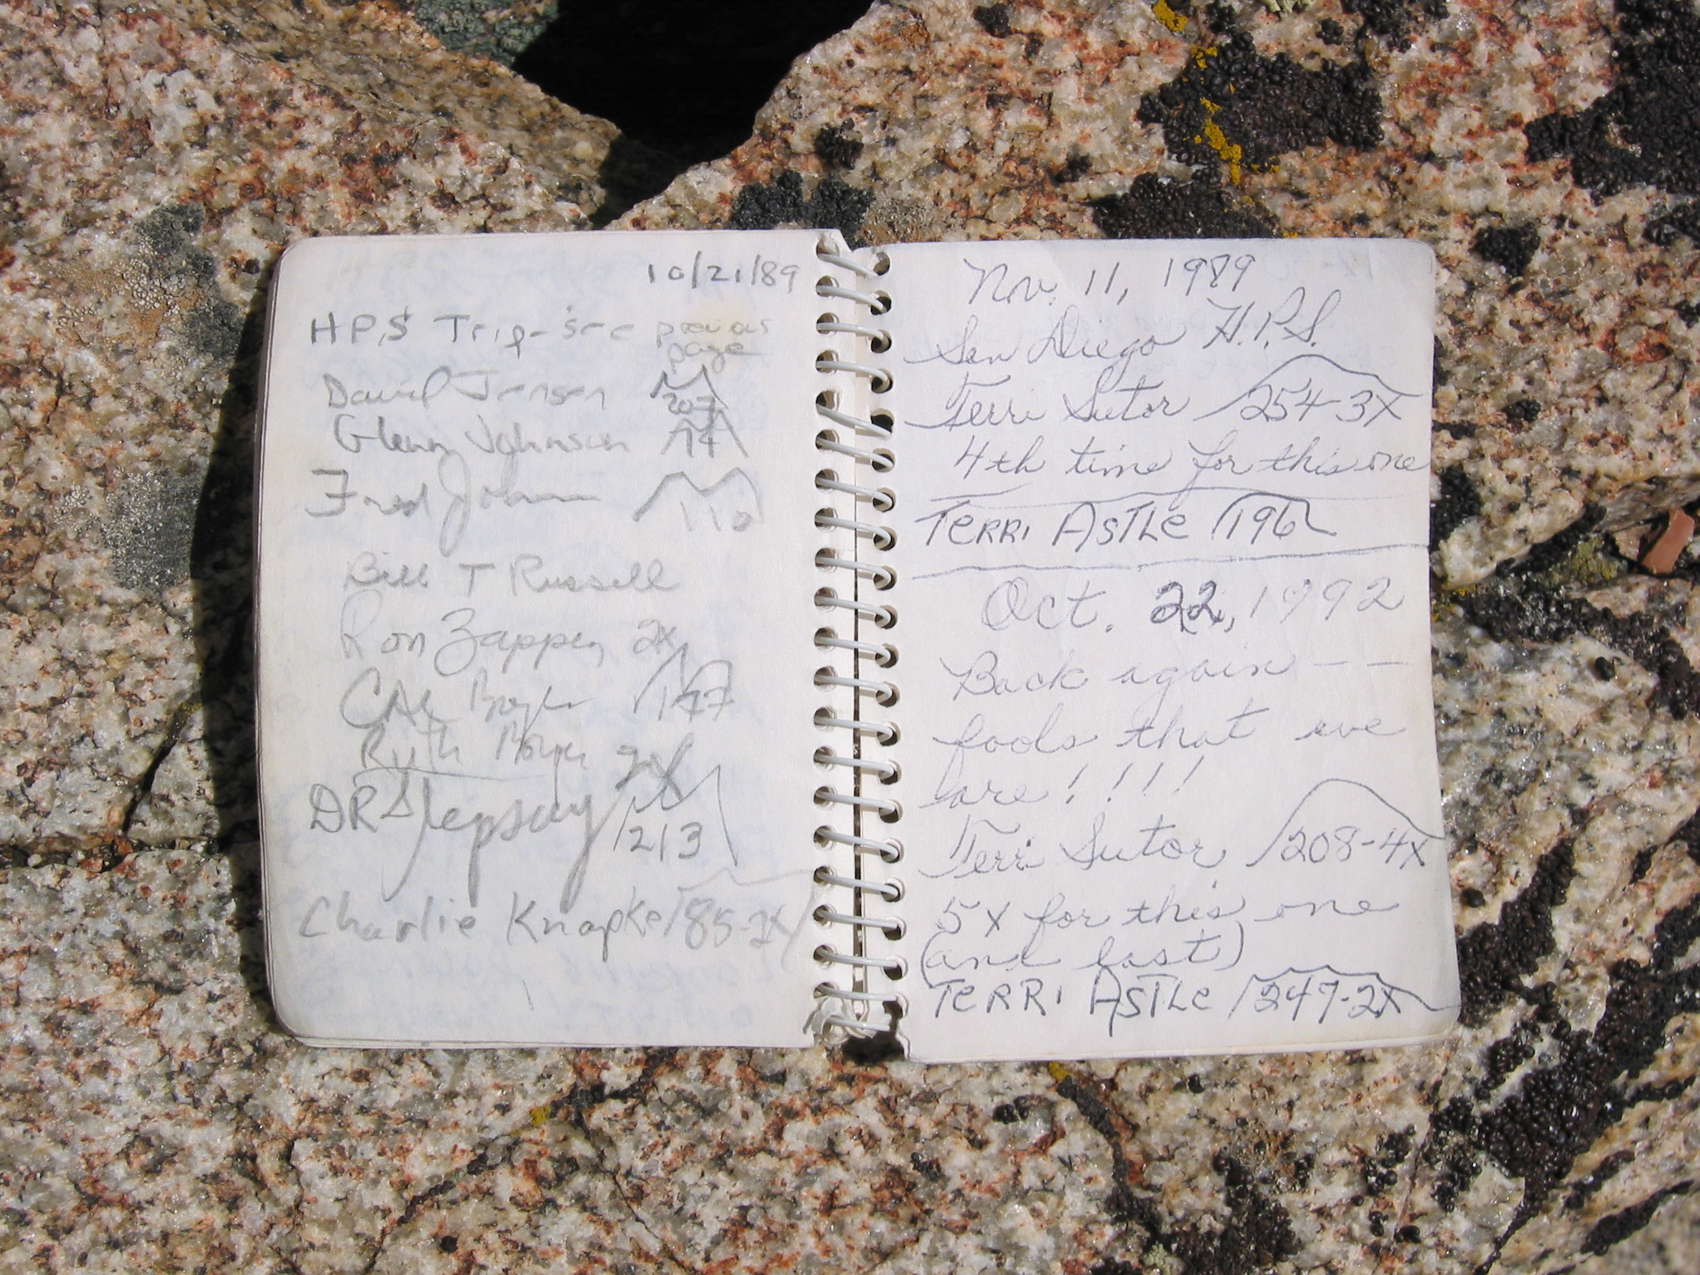 10/21/89
HPS Trip - see previous
page
David Jensen 207
Glenn Johnson 14
Fred Johnson 110
Bill T Russell
Ron Zappen 2x
Cal 177
Ruth 2X
DR 213
Charlie Knapke 185-2X
Nov. 11, 1989
San Diego H.P.S.
Terri Sutor 254-3X
4th time for this one
TERRI ASTLE 196
Oct. 22, 1992
Back again - -
fools that we
are!!!!
Terri Sutor 208-4X
5X for this one
(and last)
TERRI ASTLE 247-2X